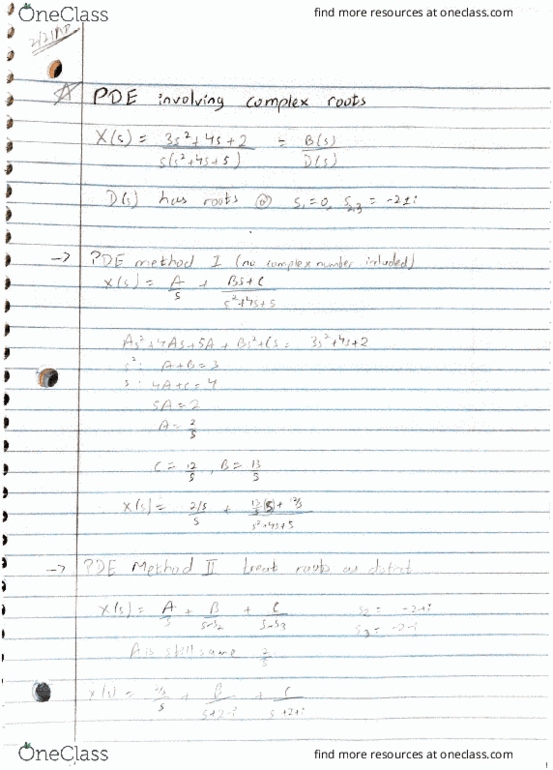 OneClass
find more resources at oneclass.com
PDE involving complex roots
X(s) = 3s²+4s+2 / s(s²+4s+5) = B(s) / D(s)
D(s) has roots @ s₁=0, s₂,₃ = -2±i
-> PDE method I (no complex number included)
X(s) = A/s + Bs+C / s²+4s+5
As²+4As+5A + Bs²+Cs = 3s²+4s+2
s²: A+B=3
s: 4A+C=4
5A=2
A=2/5
C = 12/5, B = 13/5
X(s) = 2/5 / s + 13/5(s)+12/5 / s²+4s+5
-> PDE Method II treat roots as distinct
X(s) = A/s + B/s-s₂ + C/s-s₃ s₂ = -2+i
s₃ = -2-i
A is still same 2/5
X(s) = 2/5 / s + B / s+2-i + C / s+2+i
OneClass
find more resources at oneclass.com